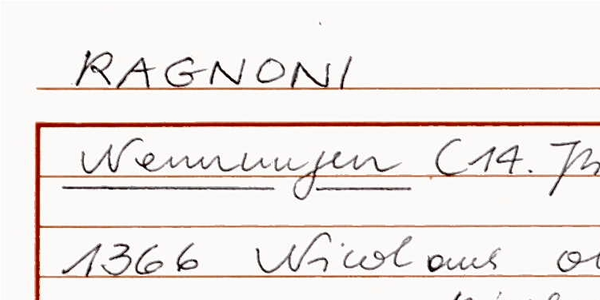 RAGNONI
Nennungen (14.
1366 Nicolaus